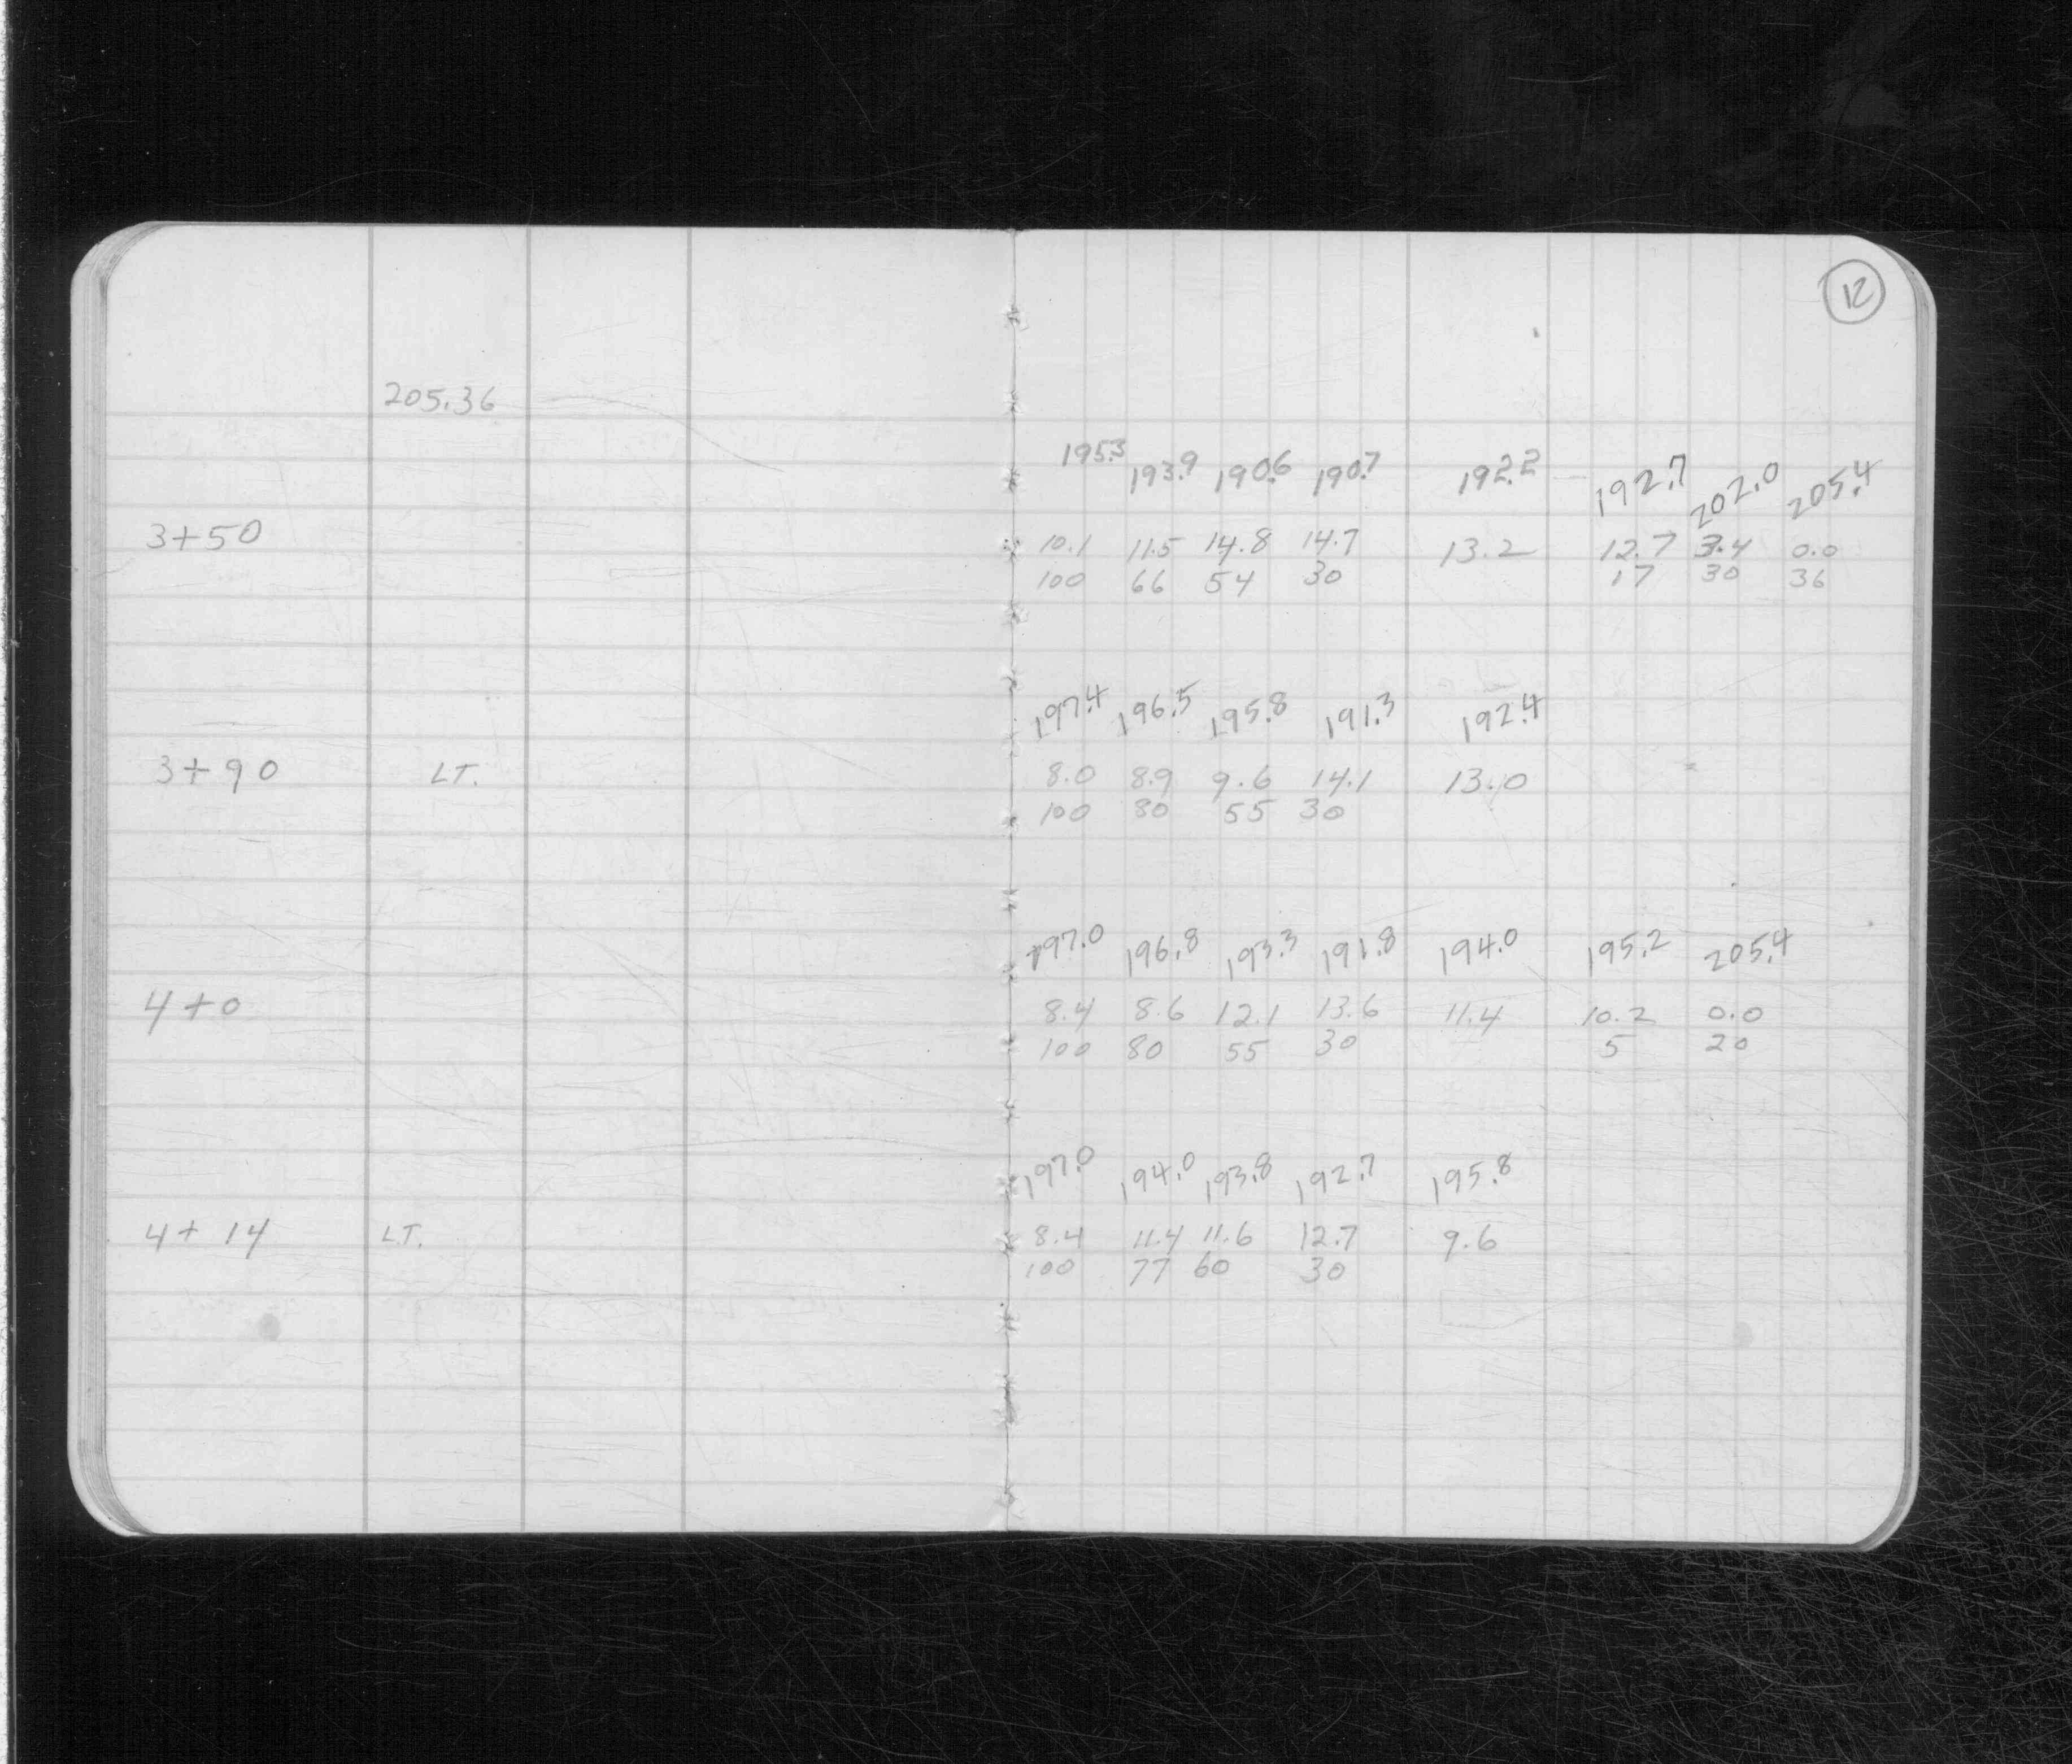 12
205.36
195.3 193.9 190.6 190.7 192.2 192.7 202.0 205.4
3+50 10.1 11.5 14.8 14.7 13.2 12.7 3.4 0.0
100 66 54 30 17 30 36
197.4 196.5 195.8 191.3 192.4
3+90 LT. 8.0 8.9 9.6 14.1 13.0
100 80 55 30
197.0 196.8 193.3 191.8 194.0 195.2 205.4
4+0 8.4 8.6 12.1 13.6 11.4 10.2 0.0
100 80 55 30 5 20
197.0 194.0 193.8 192.7 195.8
4+14 LT. 8.4 11.4 11.6 12.7 9.6
100 77 60 30